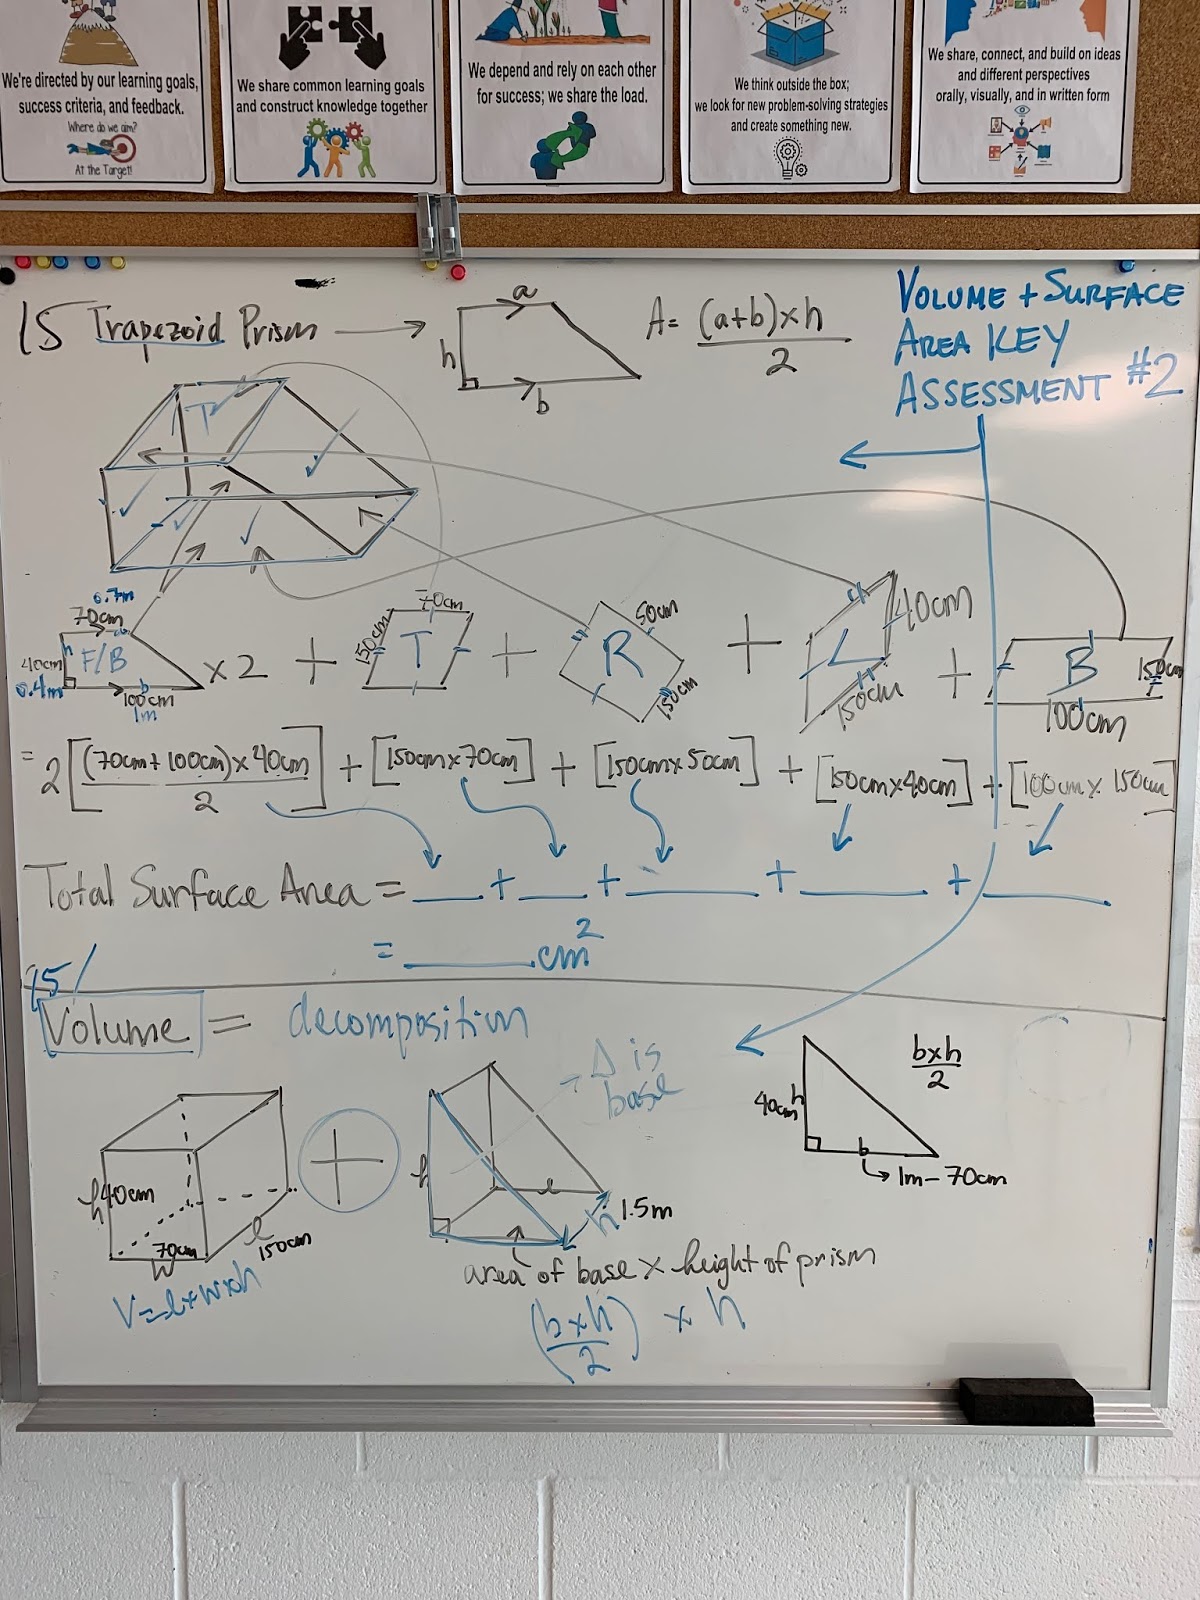 We're directed by our learning goals,
success criteria, and feedback.
Where do we aim?
At the Target!
We share common learning goals
and construct knowledge together
We depend and rely on each other
for success; we share the load.
We think outside the box;
we look for new problem-solving strategies
and create something new.
We share, connect, and build on ideas
and different perspectives
orally, visually, and in written form
VOLUME + SURFACE
AREA KEY
ASSESSMENT #2
15 Trapezoid Prism
a
h
b
A = (a+b)×h
2
T
0.7m
70cm
40cm
0.4m
h
F/B
b
100cm
1m
×2 +
70cm
150cm
T
+
50cm
R
150cm
+
40cm
L
150cm
+
B
150cm
100cm
= 2[(70cm+100cm)×40cm / 2] + [150cm×70cm] + [150cm×50cm] + [150cm×40cm] + [100cm×150cm]
Total Surface Area = ___ + ___ + ___ + ___ + ___
= ___ cm²
15/
Volume = decomposition
h 40cm
70cm
W
l
150cm
V=l×w×h
+
Δ is
base
h
l
h
1.5m
area of base × height of prism
(b×h / 2) × h
40cm
h
b
1m-70cm
b×h
2